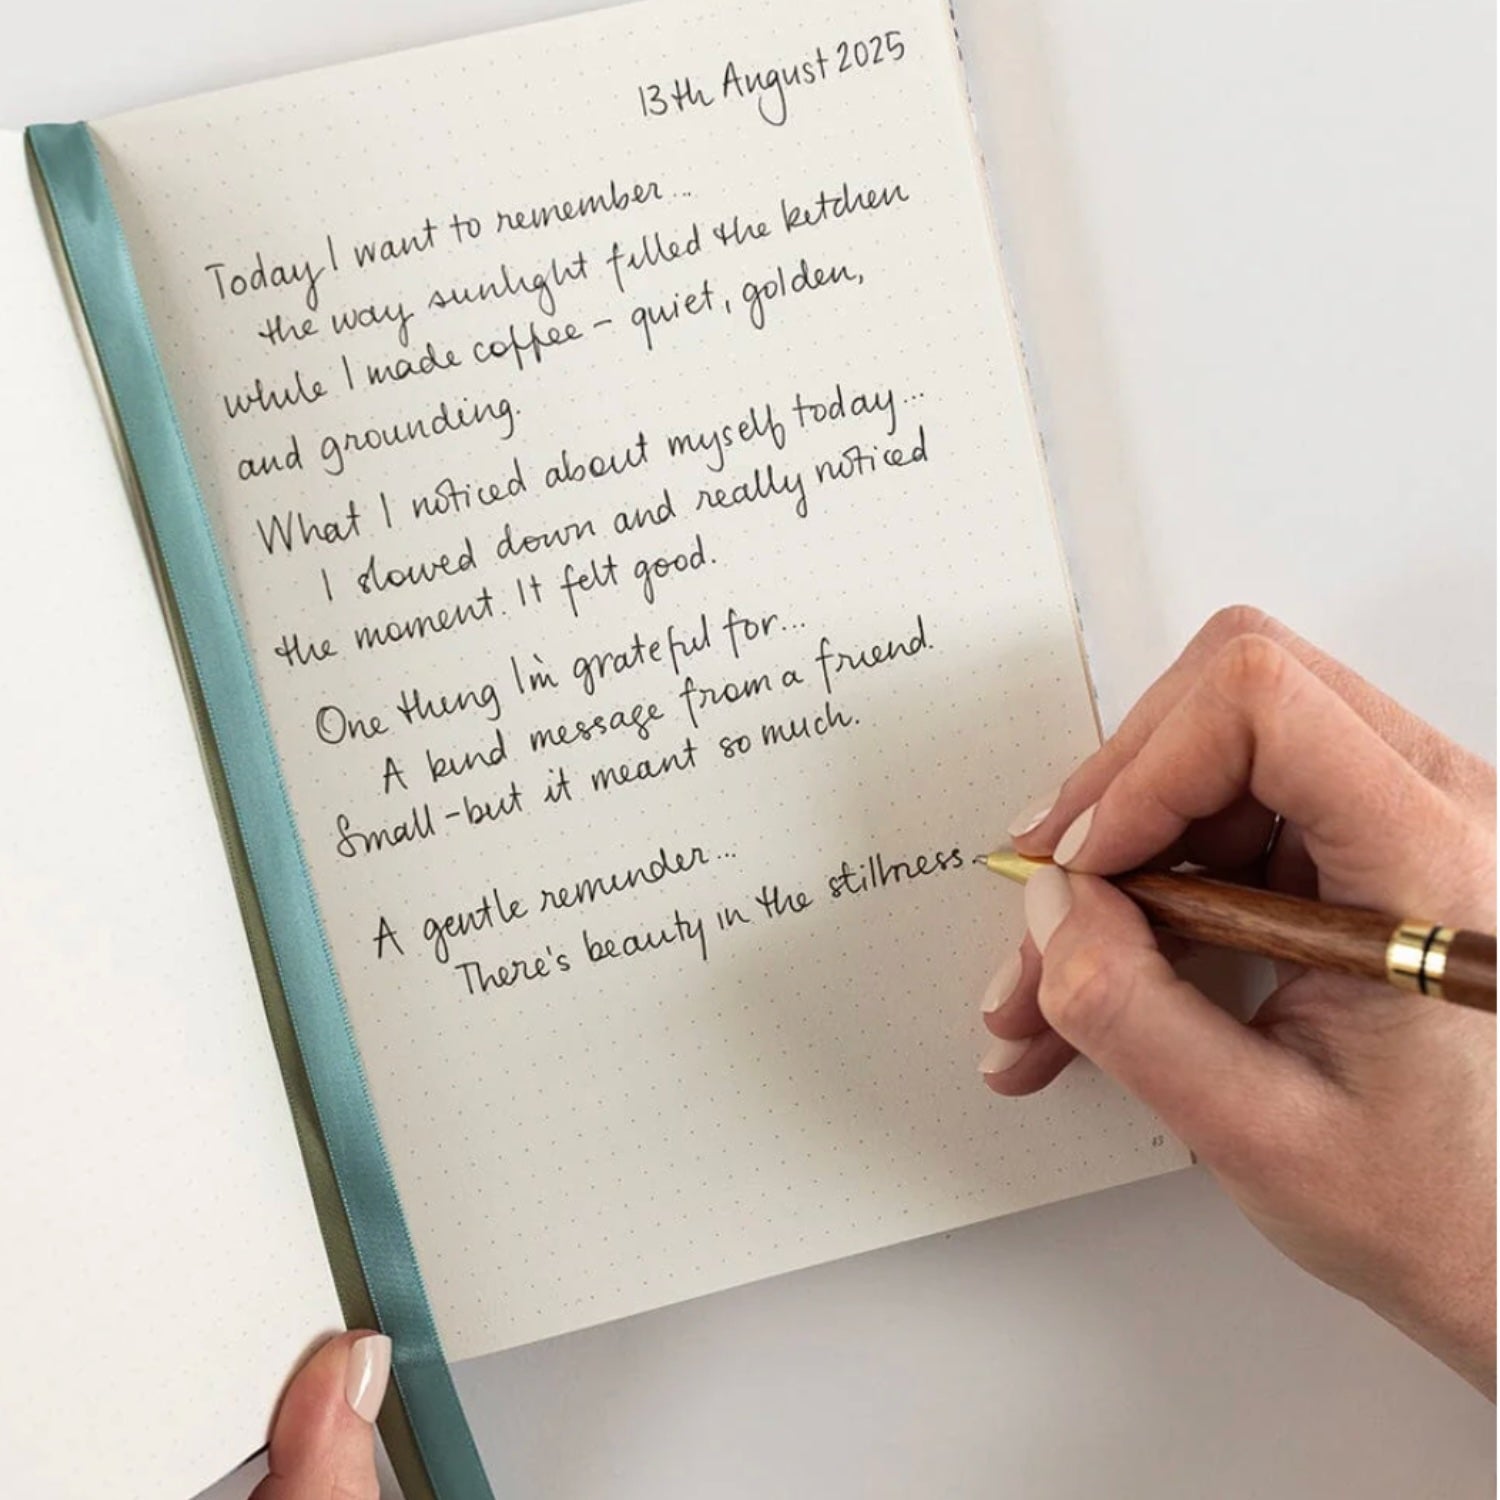 13th August 2025
Today I want to remember...
the way sunlight filled the kitchen
while I made coffee - quiet, golden,
and grounding.
What I noticed about myself today...
I slowed down and really noticed
the moment. It felt good.
One thing I'm grateful for...
A kind message from a friend.
Small - but it meant so much.
A gentle reminder...
There's beauty in the stillness